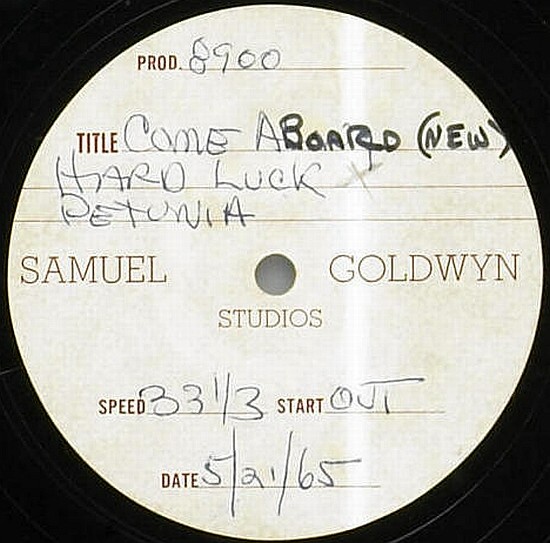 PROD. 8900
TITLE COME ABOARD (NEW)
HARD LUCK
PETUNIA
SAMUEL GOLDWYN
STUDIOS
SPEED 33 1/3 START OUT
DATE 5/21/65